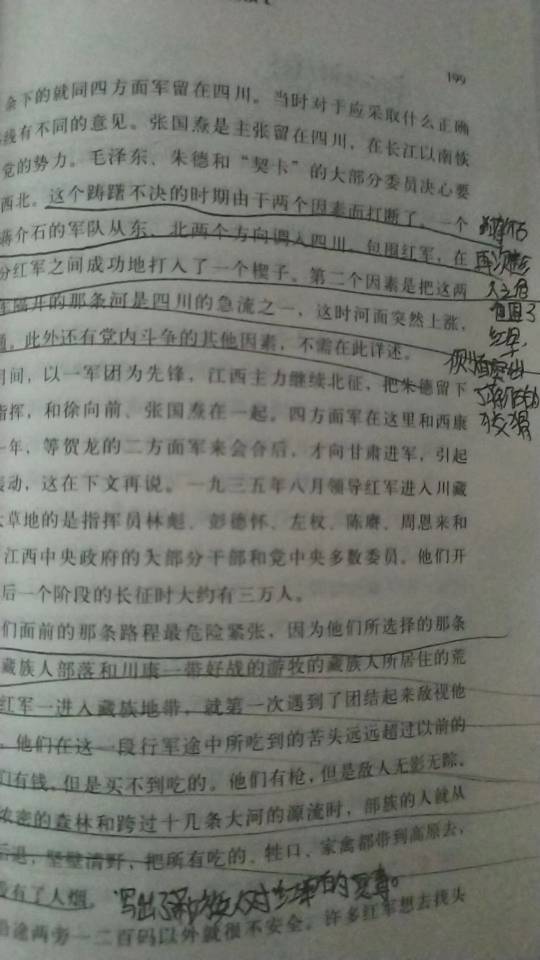 199
余下的就同四方面军留在四川。当时对于应采取什么正确
线有不同的意见。张国焘是主张留在四川，在长江以南恢
党的势力。毛泽东、朱德和“契卡”的大部分委员决心要
西北。这个踌躇不决的时期由于两个因素而打断了。一个
蒋介石的军队从东、北两个方向调入四川，包围红军，在
分红军之间成功地打入了一个楔子。第二个因素是把这两
隔开的那条河是四川的急流之一，这时河面突然上涨，
，此外还有党内斗争的其他因素，不需在此详述。
月间，以一军团为先锋，江西主力继续北征，把朱德留下
指挥，和徐向前、张国焘在一起。四方面军在这里和西康
一年，等贺龙的二方面军来会合后，才向甘肃进军，引起
动，这在下文再说。一九三五年八月领导红军进入川藏
大草地的是指挥员林彪、彭德怀、左权、陈赓、周恩来和
江西中央政府的大部分干部和党中央多数委员。他们开
后一个阶段的长征时大约有三万人。
们面前的那条路程最危险紧张，因为他们所选择的那条
藏族人部落和川康一带好战的游牧的藏族人所居住的荒
红军一进入藏族地带，就第一次遇到了团结起来敌视他
，他们在这一段行军途中所吃到的苦头远远超过以前的
们有钱，但是买不到吃的。他们有枪，但是敌人无影无踪。
浓密的森林和跨过十几条大河的源流时，部族的人就从
后退，坚壁清野，把所有吃的、牲口、家禽都带到高原去，
没有了人烟。
沿途两旁一二百码以外就很不安全。许多红军想去找头
蒋介石
再次
人之危
包围了
红军，
狡猾
写出了 族人对红军的